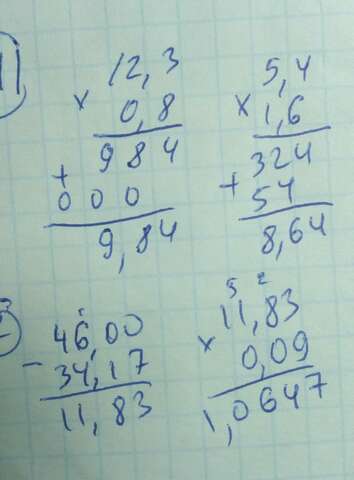 12,3
× 0,8
984
+
000
9,84
5,4
× 1,6
324
+ 54
8,64
46,00
- 34,17
11,83
5 2
11,83
× 0,09
1,0647